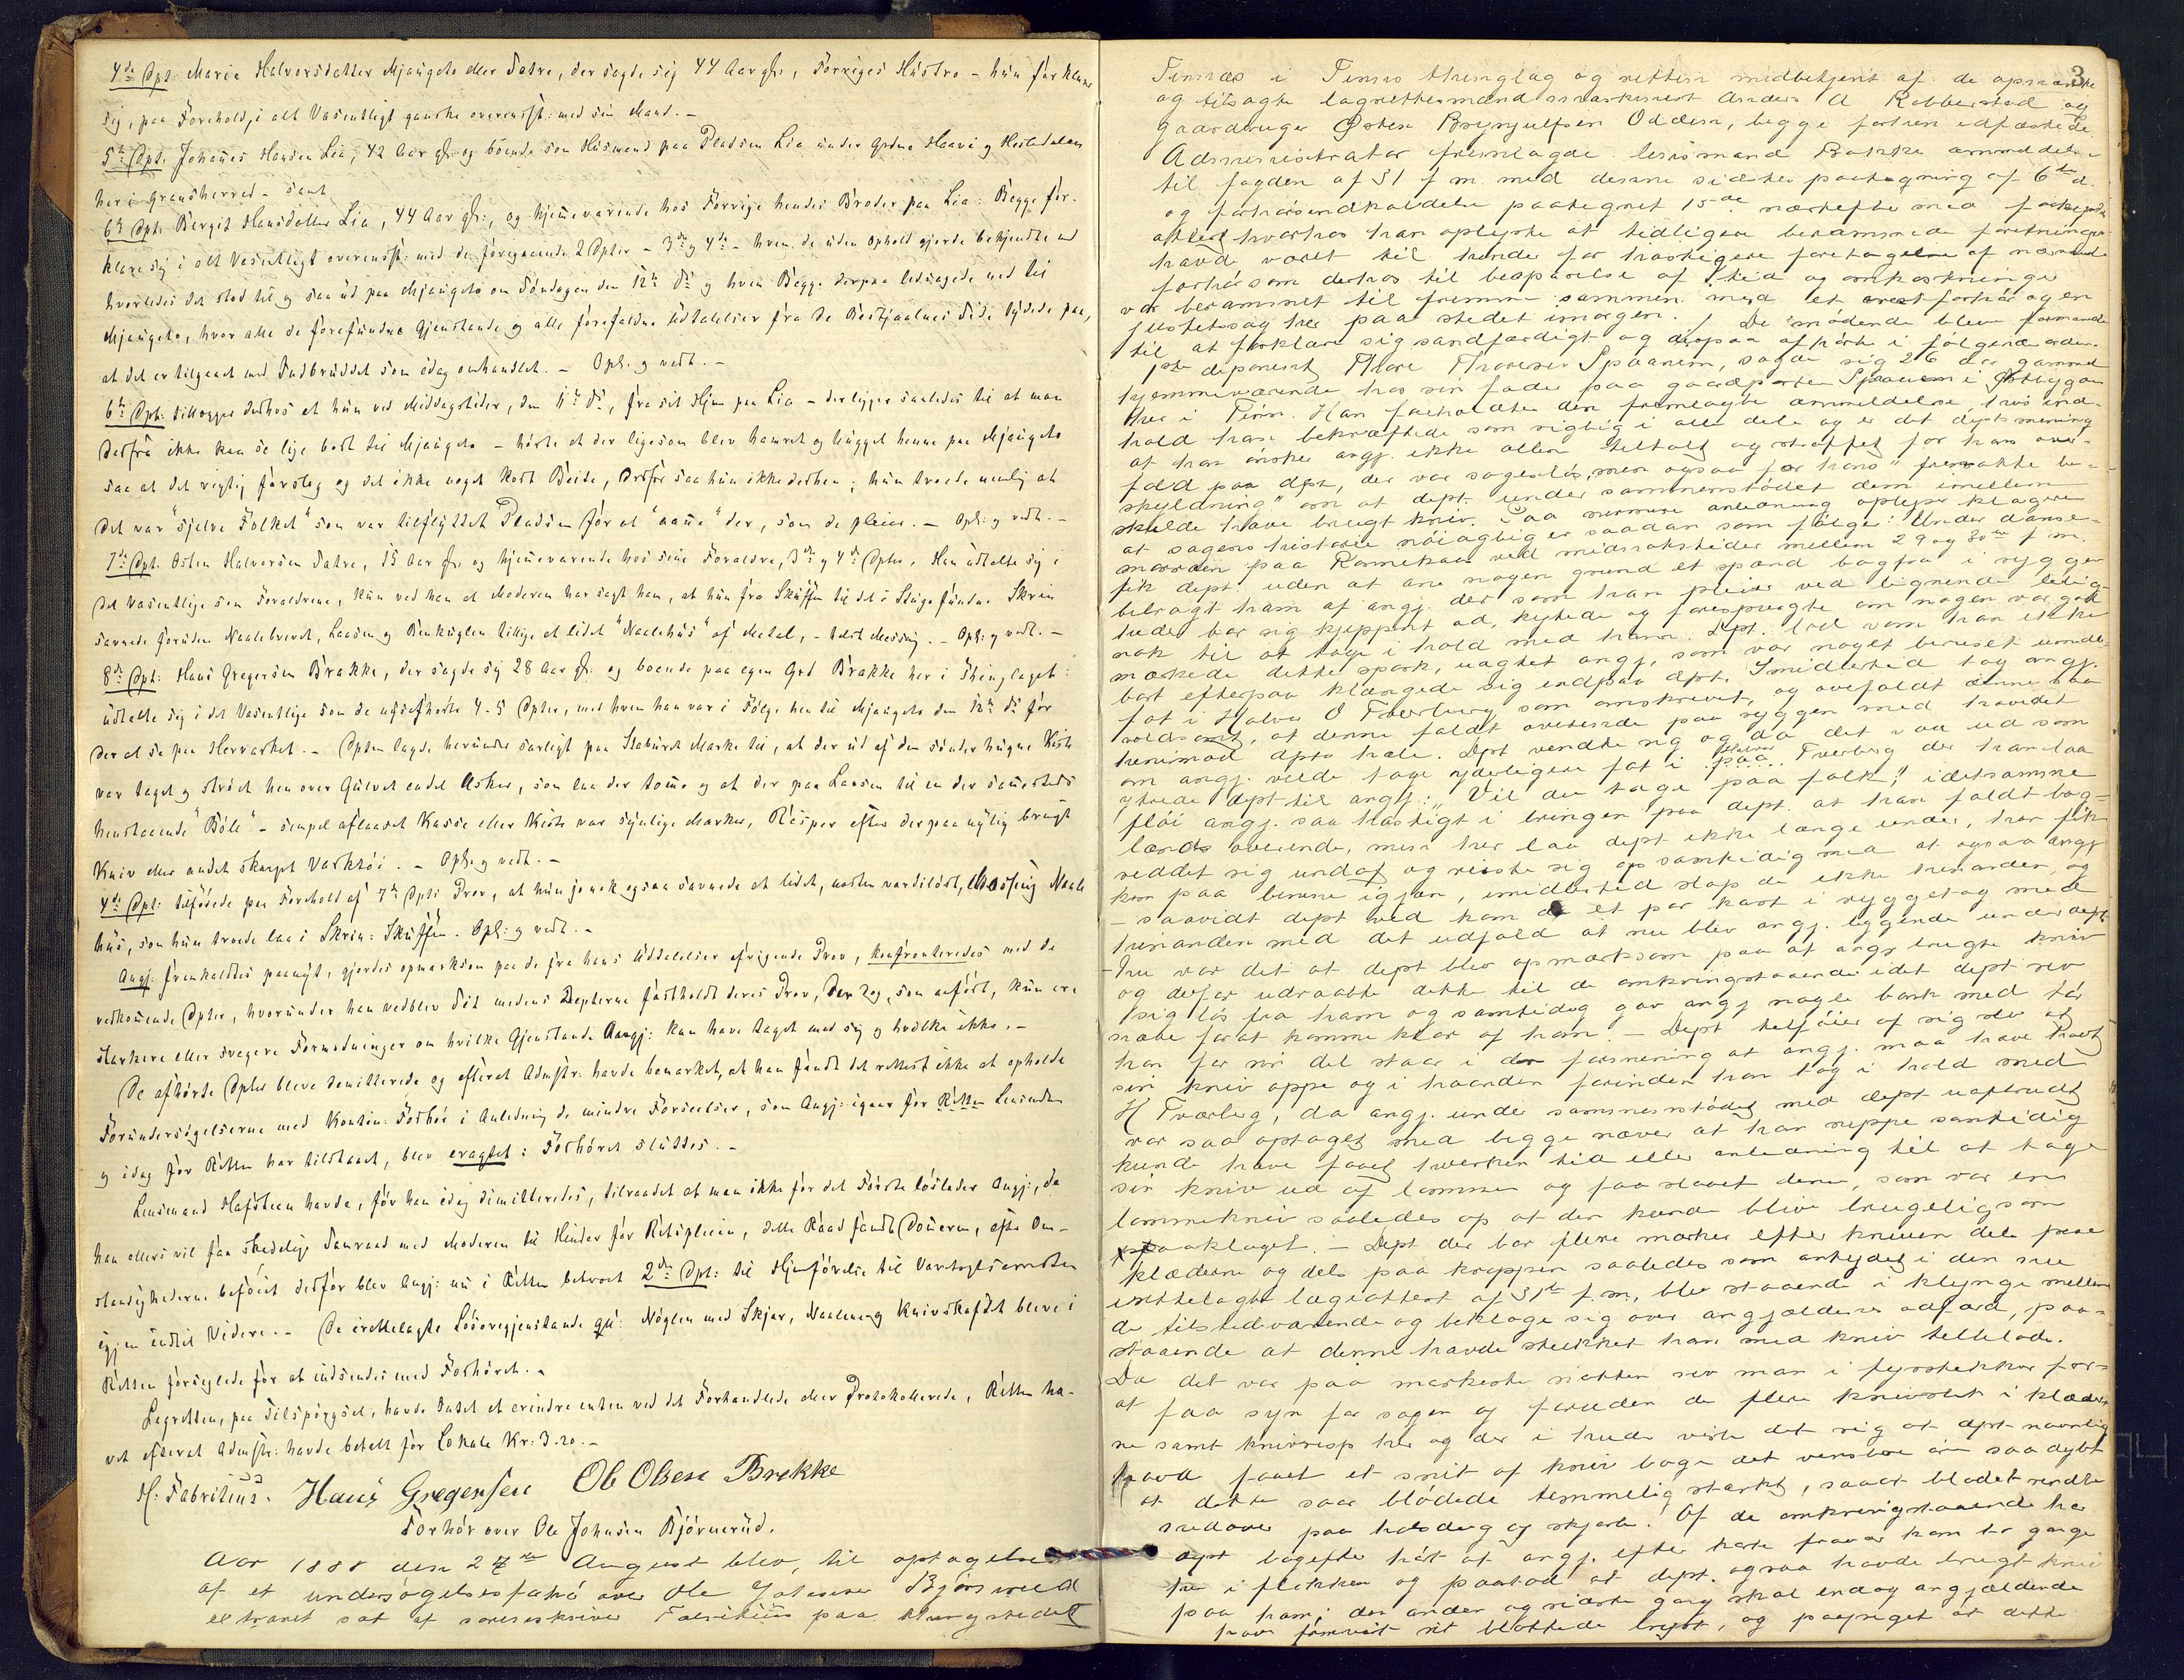 4de Dpt: Maria Halvorsdatter Mjaugeto eller Satre, der sagde sig 44 Aar gl:, Forriges Hustro – hun forklarer
sig, paa Forehold, i alt Væsentligt ganske overensst: med sin Mand. –
5te Dpt: Johanes Hansen Lia, 42 Aar gl: og boende som Husmand paa Pladsen Lia under Grdne Haavi og
her i Gransherred – samt
6te Dpt: Bergit Hansdatter Lia, 44 Aar gl:, og hjemeværende hos Forrige hendes Broder paa Lia: Begge for-
klare sig i alt Væsentligt overensst: med de foregaaende 2 Dpter – 3de og 4de – hvem de uden Ophold gjorde bekjendte med
hvorledes det stod til og saa ud paa Mjaugeto om Søndagen den 12te ds og hvem Begge derpaa ledsagede ned til
Mjaugeto, hvor alle de forefundne Gjenstande og alle forefaldne Udtalelser fra de Bestjaalnes Side tydede paa,
at det er tilgaaet med Indbruddet som idag omhandlet. – Opl: og vedt. –
6te Dpt: tillægger derhos at hun ved Middagstider, den 11te ds, fra sit Hjem paa Lia – der ligger saaledes til at man
derfra ikke kan se lige bort til Mjaugeto – hørte at der ligesom blev hamret og hugget henne paa Mjaugeto
saa at det rigtig forslog og det ikke noget kort Beite, derfor saa hun ikke derhen; hun troede nemlig at
det var "sjelve Folket" som var tilflyttet Pladsen for at "aane" der, som de pleier. – Opl: og vedt. –
7de Dpt: Østen Halvorsen Satre, 15 Aar gl: og hjemeværende hos sine Forældre, 3de og 4de Dpter. Han udtalte sig i
det væsentlige som Forældrene, kun ved han at Moderen har sagt ham, at hun fra Skuffen til det i Stuge fundne Skrin
savnede foruden Naalebrevet, Laasen og Benkuglen tillige et lidet "Naalehus" af Metal, – helst Messing. – Opl: og vedt. –
8de Dpt: Hans Gregersen Brække, der sagde sig 28 Aar gl: og boende paa egen Grd Brække her i Thinglaget:
udtalte sig i det Væsentlige som de afhørte 4-5 Dpter, med hvem han var i Følge hen til Mjaugeto den 12te ds for
der at se paa Hærværket. – Dpten lagde herunder særligt paa Staburet Mærke til, at der ud af den sønder hugne Kiste
var taget og strøet hen over Gulvet endel Asker, som laa der tomme og at der paa Laasen til en der sammesteds
henstaaende "Bøle" – simpel aflaaset Kasse eller Kiste var synlige Mærker, Risper efter derpaa nylig brugt
Kniv eller andet skarpt Værktøi. – Opl: og vedt. –
4de Dpt: tilføiede paa Forehold af 7de Dpts Prov, at hun jo nok ogsaa savnede et lidet, næsten værdiløst, Messing Naale
hus, som hun troede laa i Skrin: Skuffen. Opl: og vedt. –
Angj: fremkaldtes paanyt, gjordes opmærksom paa de fra hans Udtalelser afvigende Prov, konfronteredes med de
vedkomende Dpter, hvorunder han vedblev Sit medens Depterne fastholdt deres Prov, der dog, som anført, kun ere
stærkere eller svagere Formodninger om hvilke Gjenstande Angj: kan have taget med sig og hvilke ikke. –
De afhørte Dpter bleve demitterede og efterat Admstr: havde bemærket, at han fandt det rettest ikke at opholde
Forundersøgelserne med Kontin: Forhør i Anledning de mindre Forseelser, som Angj: igaar for Retten Lensmden
og idag for Retten har tilstaaet, blev eragtet: Forhøret sluttes. –
Lensmand Hafsteen havde, før han idag dimitteredes, tilraadet at man ikke for det Første løslader Angj:, da
han ellers vil faa skadelig Samraad med Moderen til Hinder for Retspleien, dette Raad fandt Domeren, efter Om-
stændighederne beføiet derfor blev Angj: nu i Retten betroet 2den Dpt: til Hjemførelse til Varetægtsarresten
igjen indtil Videre. – De irettelagte Løsøregjenstande gu: Nøglen med Skjær, Naalene og Knivskaftet bleve i
Retten forseglede for at indsendes med Forhøret. –
Lagretten, paa Tilspørgsel, havde Intet at erindre enten ved det Forhandlede eller Protokollerede, Retten hæ-
vet efterat Admstr: havde betalt for Lokale Kr: 3.20. –
H. Fabritius. Hans Gregersen Ole Olsen Brekke
Forhør over Ole Johnsen Bjørnerud.
Aar 1888 den 27de August blev, til optagelse
af et undersøgelsesforhør over Ole Johnsen Bjørnerud
extraret sat af sorenskriver Fabritius paa thingstedet
3
Tinnæs i Tinns thinglag og retten medbetjent af de opnævnte
og tilsagte lagrettesmænd Anders A Kobberstad og
gaardbruger Østen Brynjulfsen Odden, begge forhen edfæstede
Administrator fremlagde lensmand Bakke anmeldelse
til fogden af 31 f m. med dennes sidste paategning af 6te d.
og forhørsindkaldelse paategnet 15de næstefter med forkyndt
attest hvorhos han oplyste at tidligere berammede forretninger
havde været til hinder for hastigere foretagelse af nærværende
forhør som derhos til besparelse af tid og omkostninger
var berammet til fremme sammen med et arrestforhør og en
justitssag her paa stedet imorgen. / De mødende blev formanede
til at forklare sig sandfærdigt og derpaa afhørte i følgende orden.
1ste deponent Thore Thoresen Spaanem, sagde sig 26 aar gammel
hjemmeværende hos sin fader paa gaardparten Spaanem i Østbygden
her i Tinn. Han foreholdtes den fremlagte anmeldelse hvis ind-
hold han bekræftede som rigtig i alle dele og er det dpts mening
at han ønsker angj. ikke alene tiltalt og straffet for hans over-
fald paa dpt, der var sagesløs, men ogsaa for hans "fremsatte be-
skyldning" om at dept. under sammenstødet dem imellem
skulde have brugt kniv. Paa nærmere anledning oplyser klageren
at sagens historie nøiagtig er saadan som følger: Under danse-
moroen paa Rønnekaas ved midnatstider mellem 29 og 30te f. m.
fik dept. uden at ane nogen grund et spænd bagfra i ryggen
bibragt ham af angj. der som han pleier ved lignende leilig-
heder bar sig kjeppent ad, kytede og forespurgte om nogen var god
nok til at tage i hold med ham. Dpt. lod som han ikke
mærkede dette spark, uagtet angj. som var noget beruset umidel-
bart efterpaa klængede sig endpaa dpt. Imidlertid tog angj.
fat i Halvor O Tverberg som omskrevet, og overfaldt denne saa
voldsomt, at denne faldt overende paa ryggen med hovedet
henimod dpts hæle. Dpt vendte sig og da det saa ud som
om angj. vilde tage yderligere fat i Halvor Tverberg der han laa
ytrede dpt til angj: "Vil du tage paa folk"! idetsamme
fløi angj. saa hastigt i bringen paa dept. at han faldt bag-
lænds overende, men her laa dept ikke længe under, han fik
reddet sig undaf og reiste sig op samtidig med at ogsaa angj
kom paa benene igjen, imidlertid slap de ikke hinanden, og
– saavidt dept ved kom de et par kast i rygget og med
hinanden med det udfald at nu blev angj. liggende under dept
– Nu var det at dept blev opmærksom paa at angj brugte kniv
og derfor udraabte dette til de omkringstaaende idet dept rev
sig løs fra ham og samtidig gav angj nogle bask med tør
næve for at komme klar af ham. – Dept tilføier af sig selv at
han for sin del staar i den formening at angj. maa have havt
sin kniv oppe og i haanden forinden han tog i hold med
H Tverberg, da angj. under sammenstødet med dept uafbrudt
var saa optaget med begge næver at han neppe samtidig
kunde have faaet hverken tid eller anledning til at tage
sin kniv ud af lommen og faa slaaet denne, som var en
lommekniv saaledes op at den kunde blive brugelig som
paaklaget. – Dept der bar flere mærker efter kniven dels paa
klæderne og dels paa kroppen saaledes som antydet i den nu
irettelagte lægeattest af 31te f. m., blev staaende i klynge mellem
de tilstedeværende og beklage sig over angjældenes adfærd, paa-
staaende at denne havde stukket ham med kniv tillige.
Da det var paa mørkeste natten rev man i fyrstikker for
at faa syn for sagen og foruden de flere knivstik i klæder-
ne samt knivrisp her og der i huden viste det sig at dpt navnlig
havde faaet et snit af kniv bag det venstre øre saa dybt
at dette saar blødede temmelig stærkt, saaat blodet rendte
nedover paa halsdug og skjorte. Af de omkringstaaende har
dept bagefter hørt at angj. efter korte fravær kom to gange
her i flokken og paastod at dept. ogsaa havde brugt kniv
paa ham; den anden og sidste gang skal endog angjældende
have fremvist sit blottede bryst, og paapeget at dette